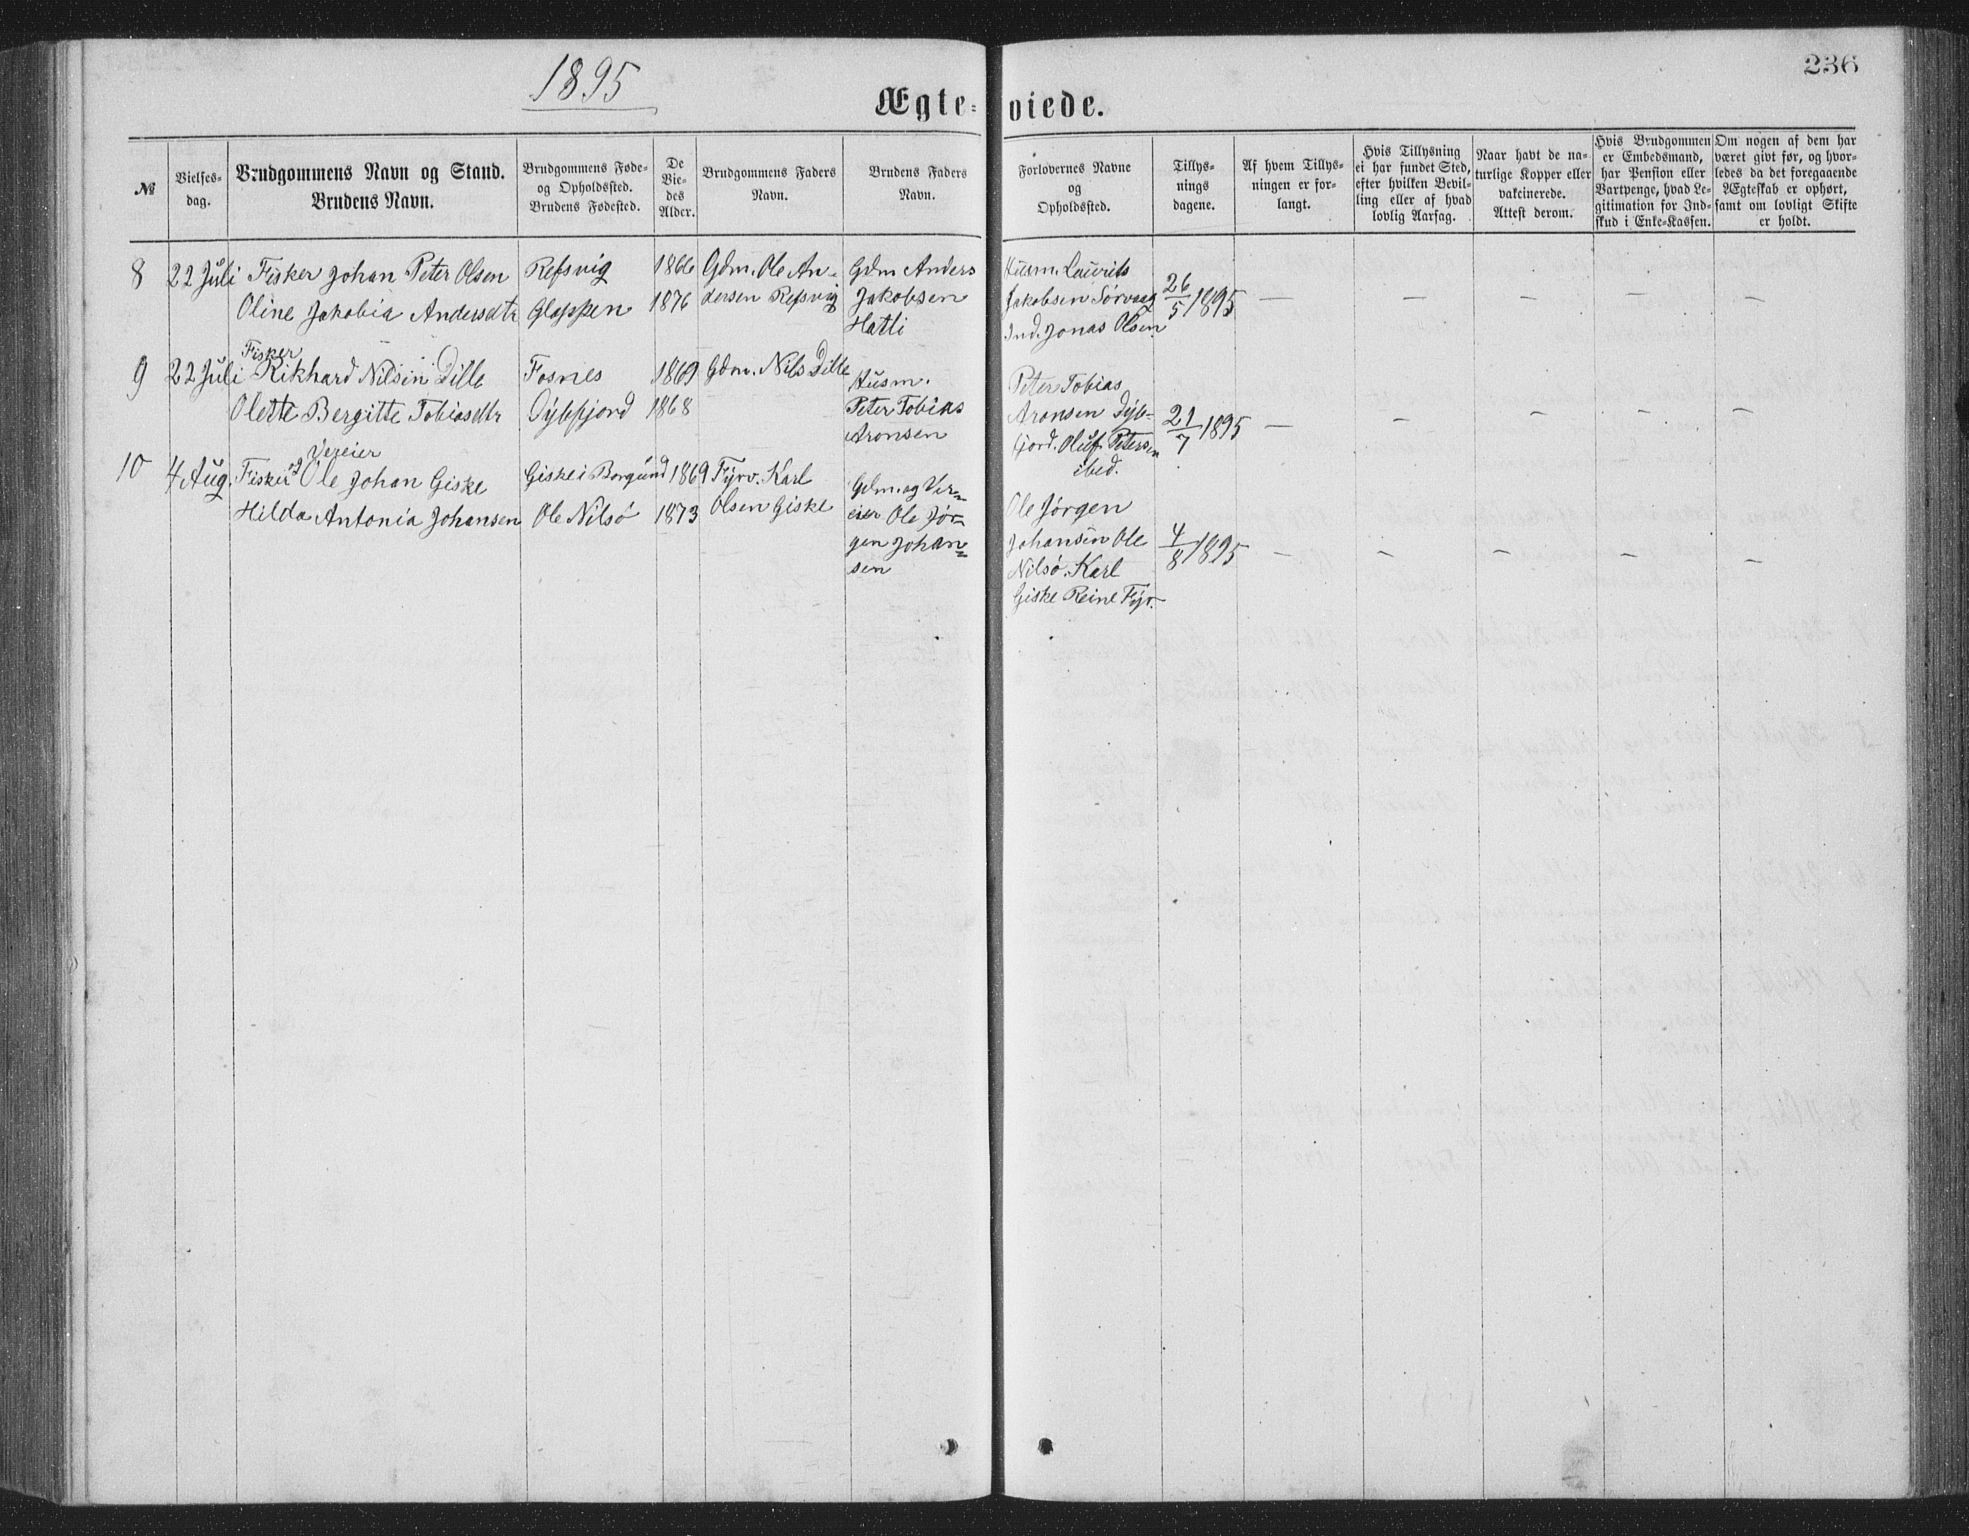 1895
236
Ægte-viede.
№
Vielses-
dag.
Brudgommens Navn og Stand.
Brudens Navn.
Brudgommens Føde-
og Opholdssted.
Brudens Fødested.
De
Vie-
des
Alder.
Brudgommens Faders
Navn.
Brudens Faders
Navn.
Forlovernes Navne
og
Opholdssted.
Tillys-
nings
dagene.
Af hvem Tillys-
ningen er for-
langt.
Hvis Tillysning
ei har fundet Sted,
efter hvilken Bevil-
ling eller af hvad
lovlig Aarsag.
Naar havt de na-
turlige Kopper eller
vakcinerede.
Attest derom.
Hvis Brudgommen
er Embedsmand,
har Pension eller
Vartpenge, hvad Le-
gitimation for Ind-
skud i Enke-Kassen.
Om nogen af dem har
været givt før, og hvor-
ledes da det foregaaende
Ægteskab er ophørt,
samt om lovligt Skifte
er holdt.
8
22 Juli
Fisker Johan Peter Olsen
Oline Jakobia Andersdtr
Refsvig
Gloppen
1866
1876
Gdm. Ole An-
dersen Refsvig
Gdm Anders
Jakobsen
Hatli
Husm. Laurits
Jakobsen Sørvaag
Ind. Jonas Olsen
26/5 1895
— — — — —
9
22 Juli
Fisker
Rikhard Nilsen Dille
Olette Bergitte Tobiasdtr
Fosnes
Dybfjord
1869
1868
Gdm. Nils Dille
Husm.
Peter Tobias
Aronsen
Peter Tobias
Aronsen Dyb-
fjord. Oluf Petersen
ibid.
21/7 1895
— — — — —
10
4 Aug.
Vereier
Fisker og Ole Johan Giske
Hilda Antonia Johansen
Giske i Borgund
Ole Nilsö
1869
1873
Fyrv. Karl
Olsen Giske
Gdm. og Vær-
eier Ole Jør-
gen Johan-
sen
Ole Jørgen
Johansen Ole
Nilsö. Karl
Giske Reine Fyr.
4/8 1895
— — — — —